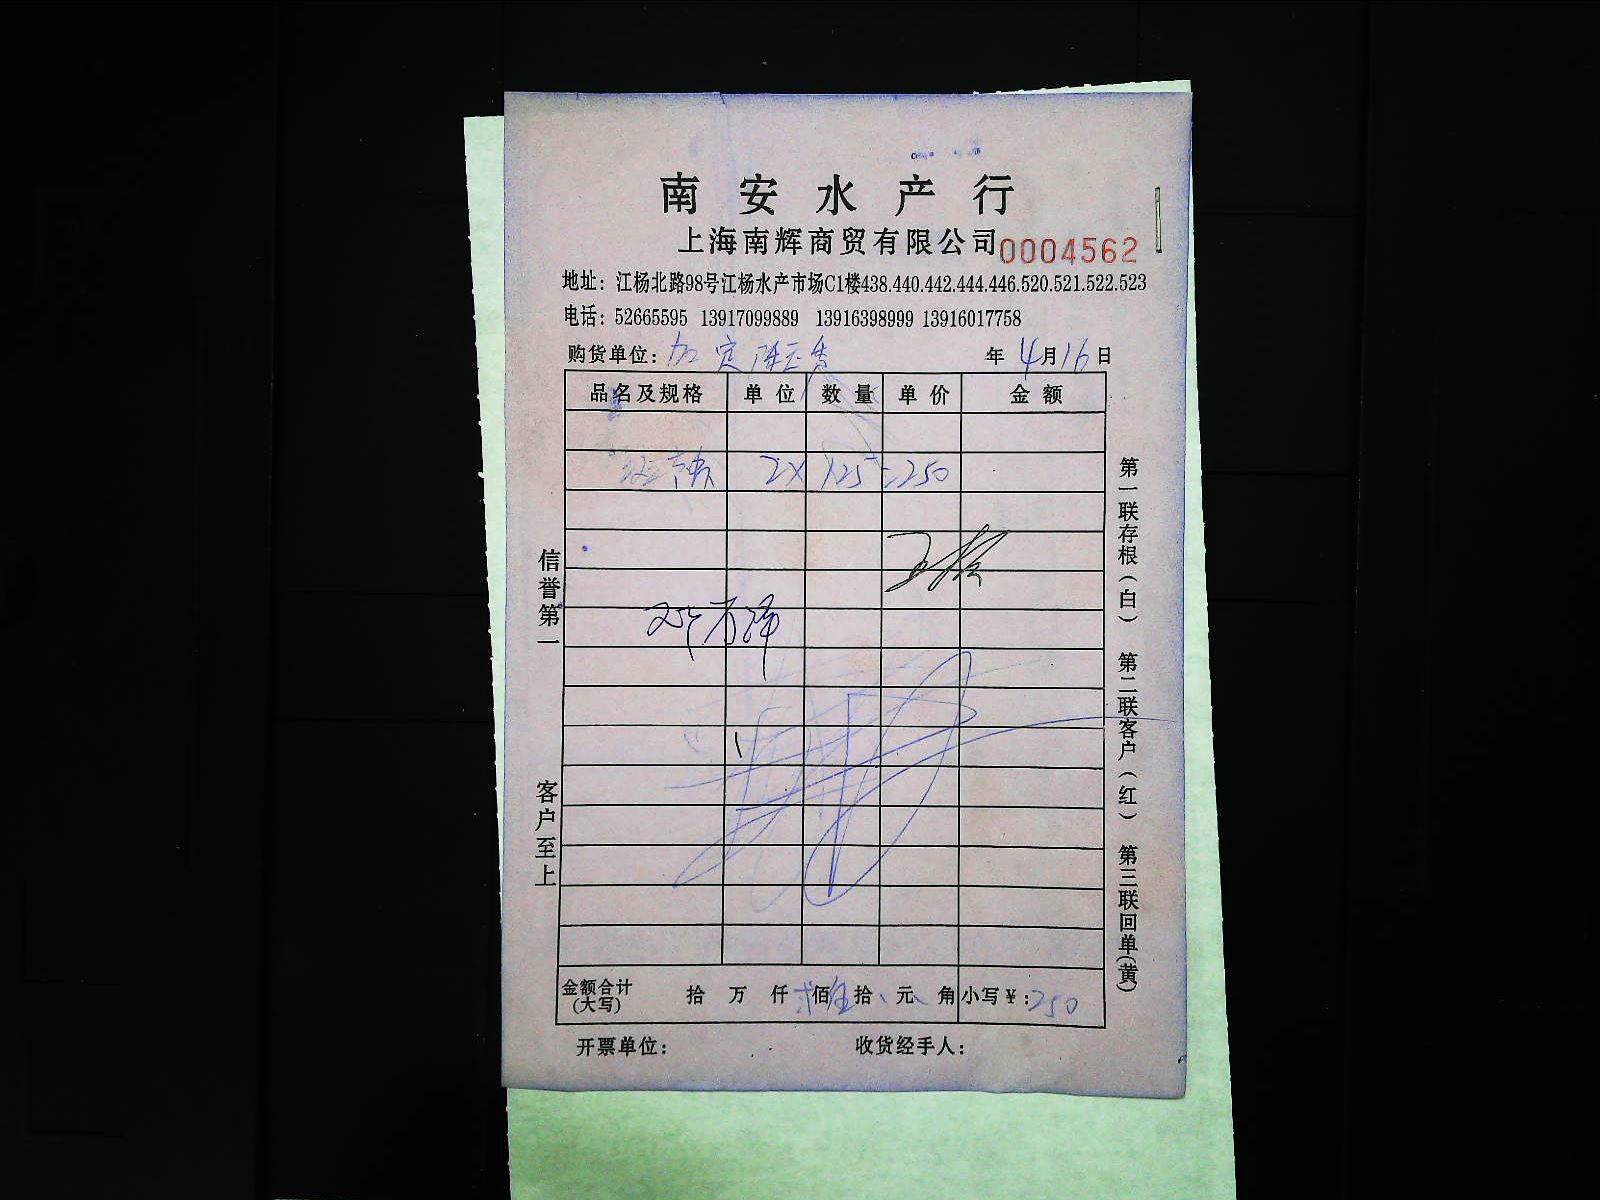 南安水产行
上海南辉商贸有限公司 0004562
地址：江杨北路98号江杨水产市场C1楼438.440.442.444.446.520.521.522.523
电话：52665595 13917099889 13916398999 13916017758
购货单位： 年 4月16日
品名及规格 单位 数量 单价 金额
2X 125=250
信誉第一
客户至上
第一联存根（白） 第二联客户（红） 第三联回单（黄）
金额合计（大写） 拾 万 仟 佰 拾 元 角 小写￥：250
开票单位： 收货经手人：